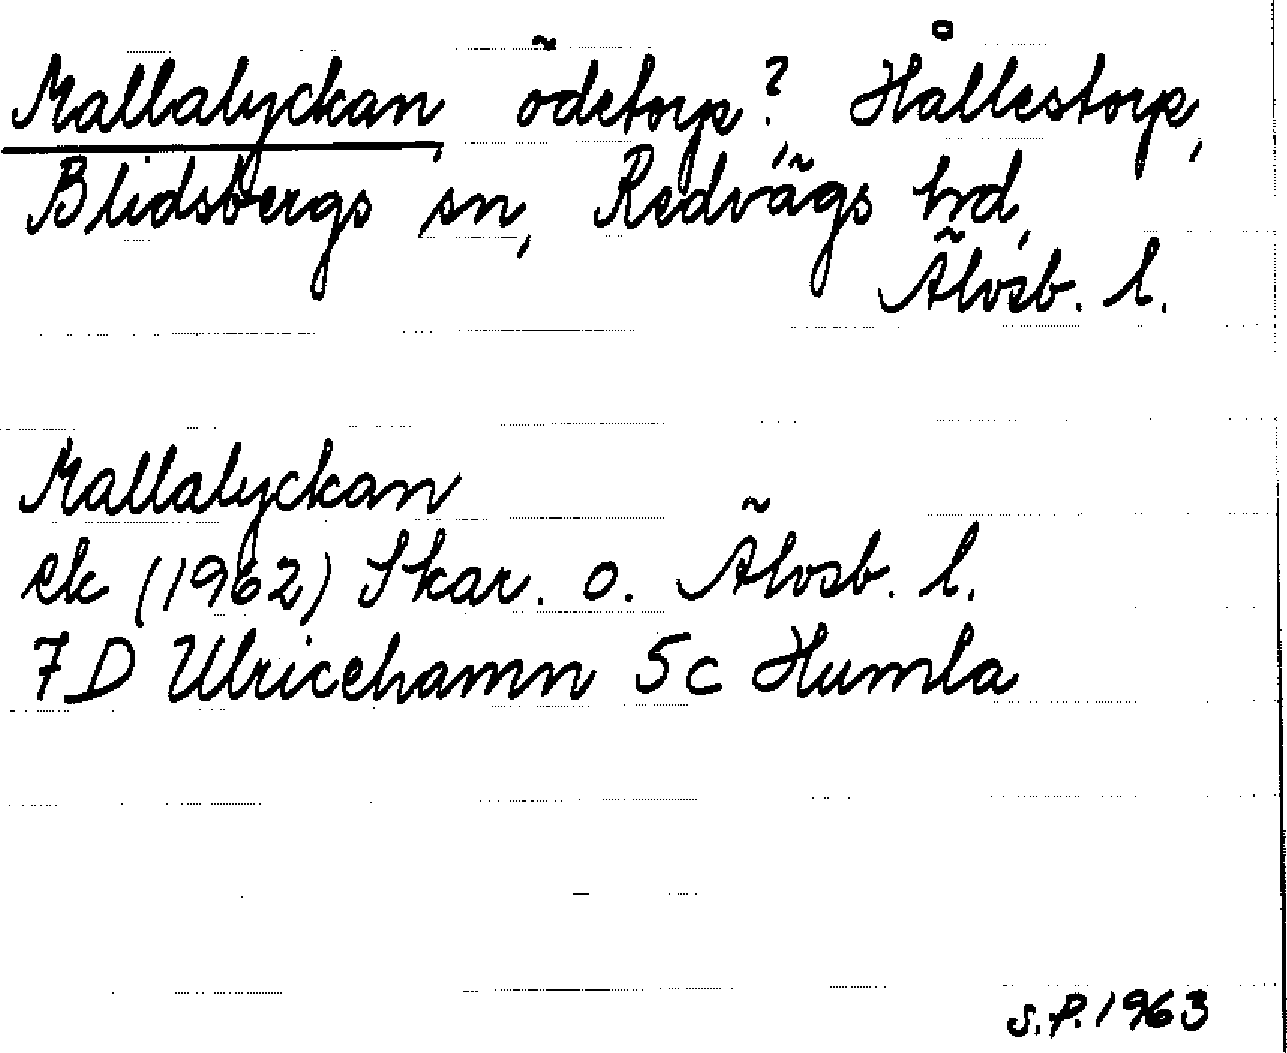 Mallalyckan, ödetorp?, Hållestorp,
Blidsbergs sn, Redvägs hd,
Älvsb. l.
Mallalyckan
ek (1962) Skar. o. Älvsb. l.
7D Ulricehamn 5c Humla
S.P. 1963